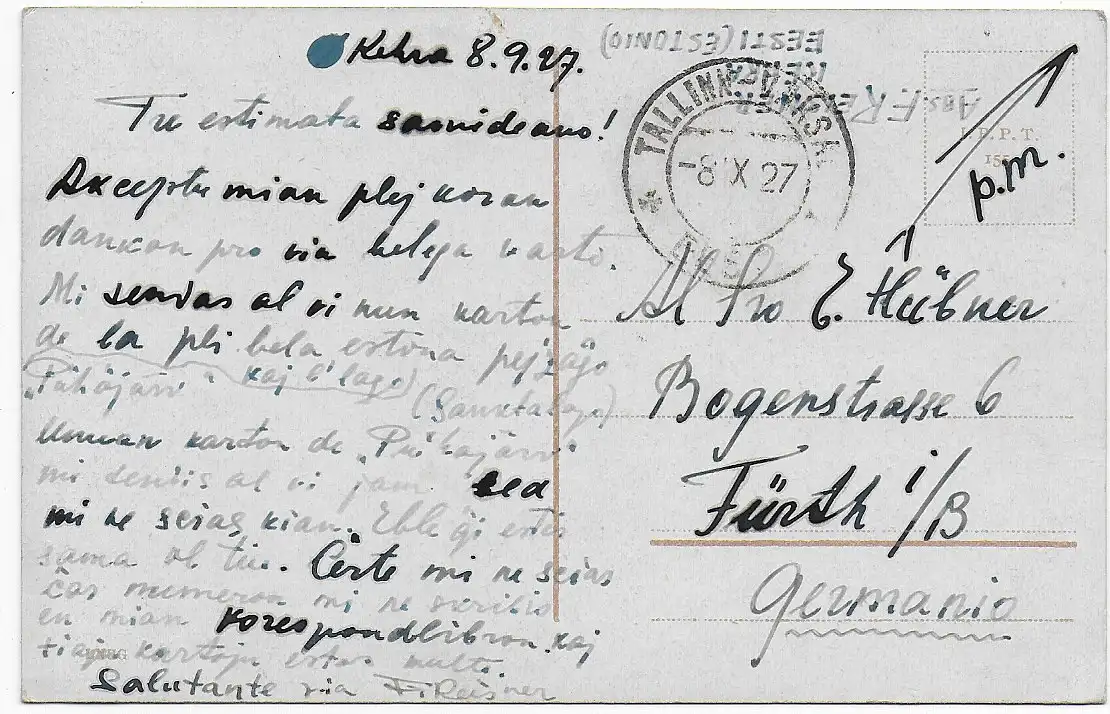 Kehra 8.9.27.
Tre estimata samideano!
Akceptu mian plej koran
dankon pro via belega karto.
Mi sendas al vi nun karton
de la plj bela estona pejzaĝo
„Pühäjärv“ kaj l' lago)
(Sanktalago)
Unuan karton de „Pühajärv“
mi sendis al vi jam sed
mi ne scias kian. Eble ĝi estis
sama ol tiu. Certe mi ne scias
ĉar numeron mi ne skribis
en mian korespondlibron kaj
tiaj kartoj estas multe.
Salutante via F. Reisner
EESTI (ESTONIO)
KEHRA
TALLINN-VAKSAL
-8 IX 27
I.P.P.T.
155
p.m.
Al Sro E. Hübner
Bogenstrasse 6
Fürth i/B
Germanio